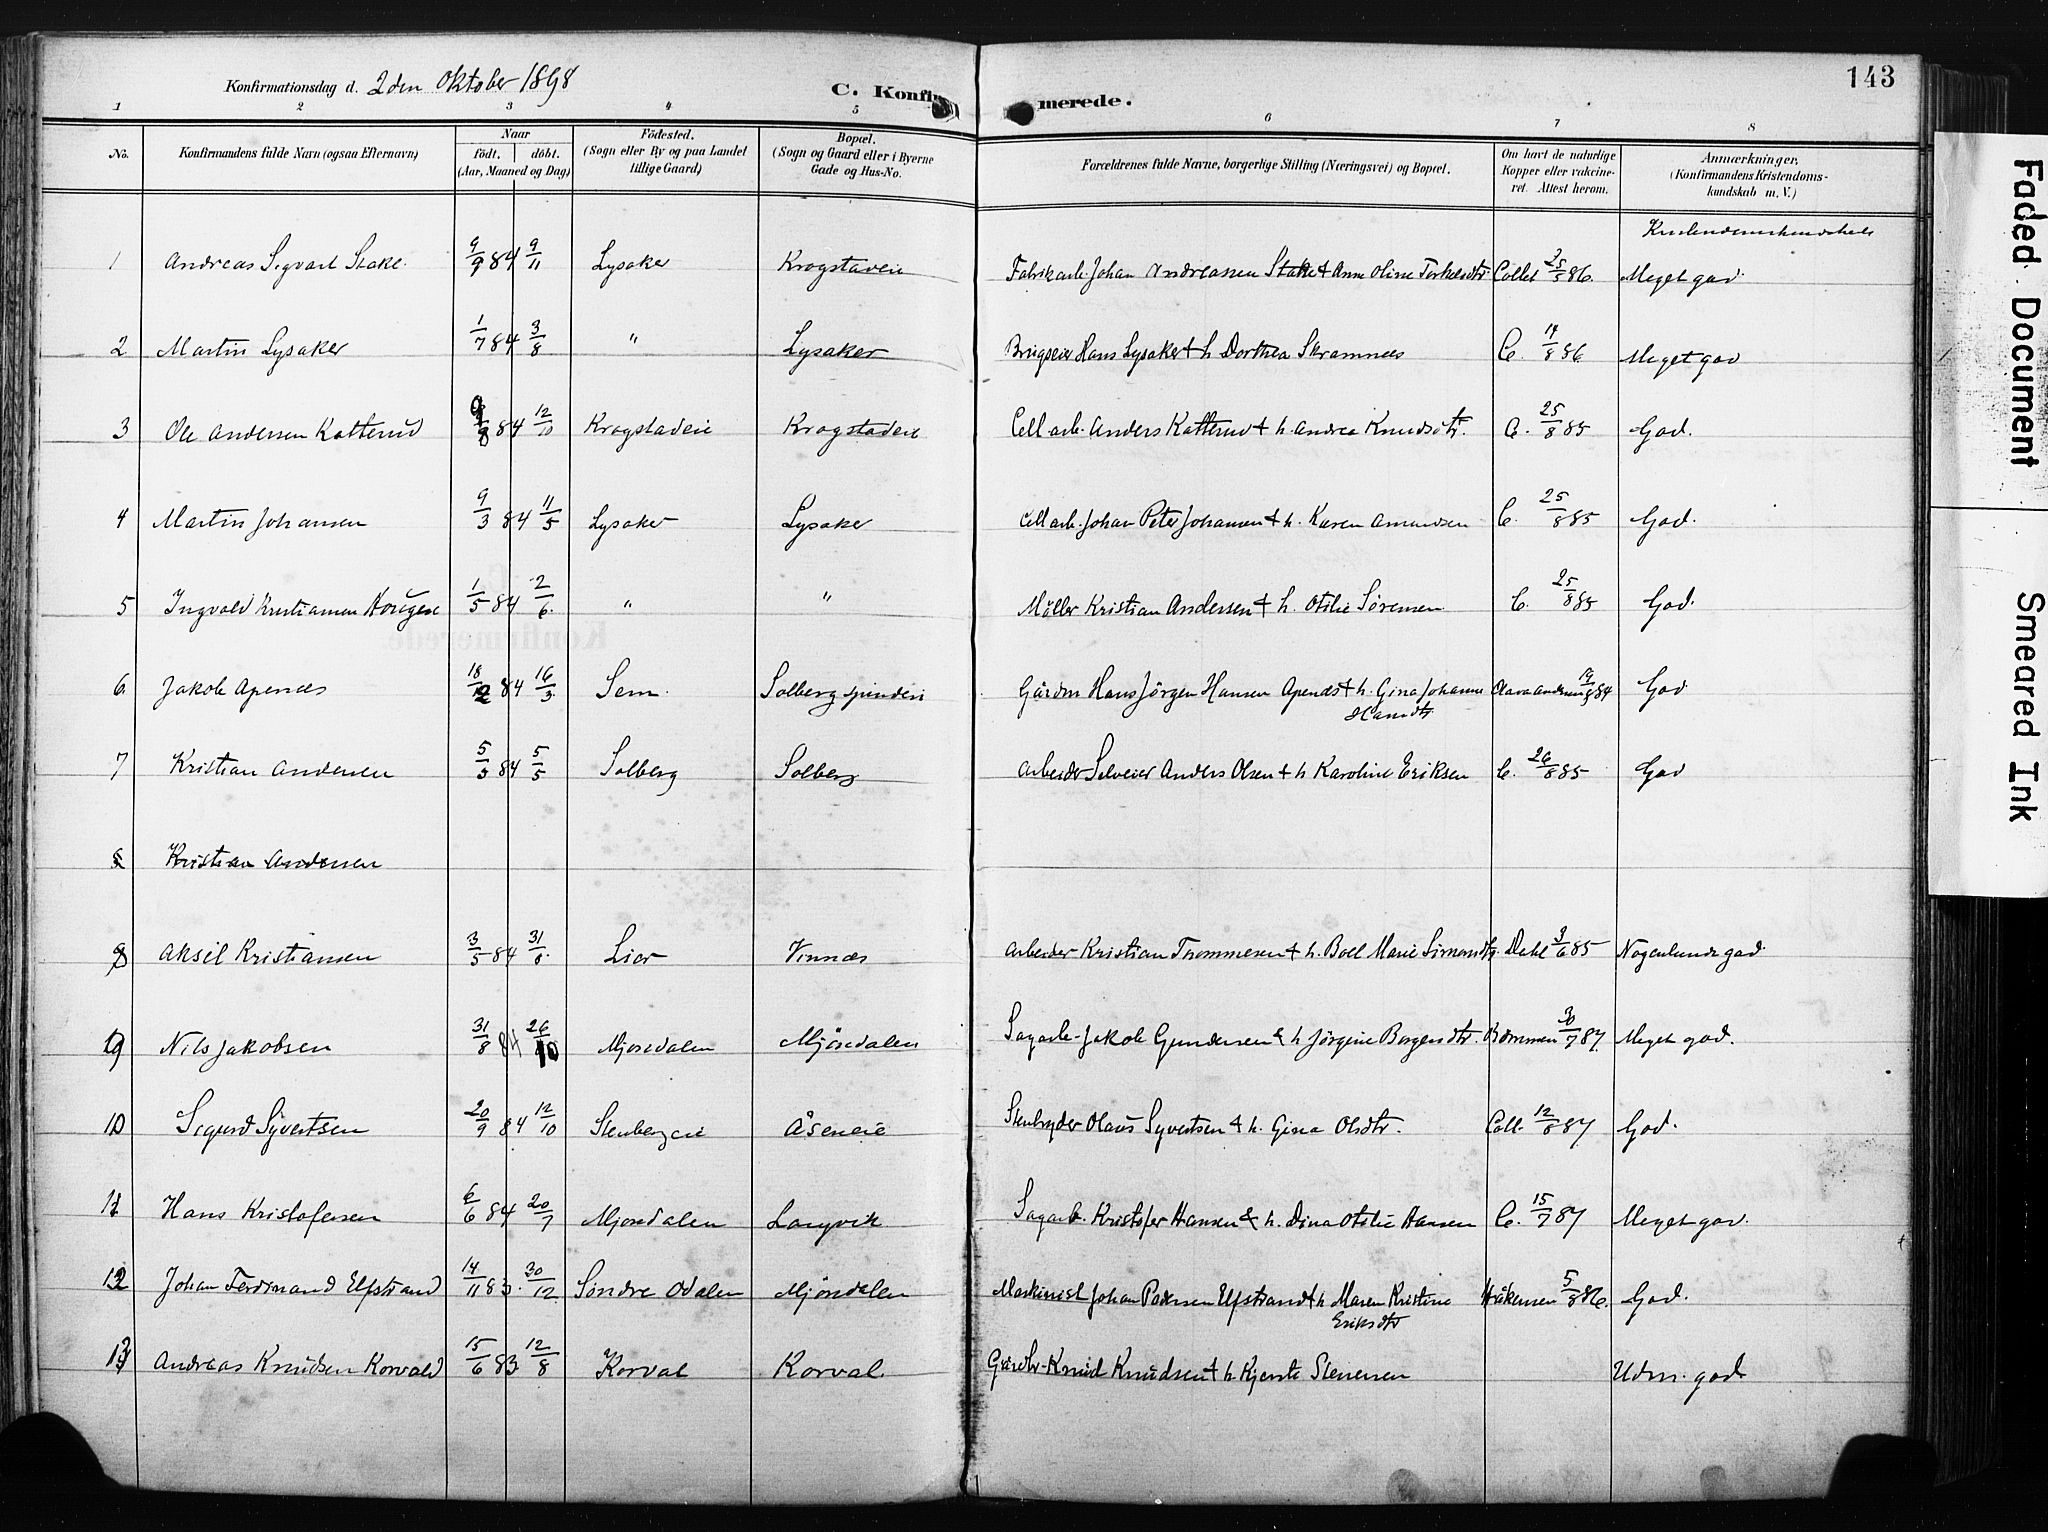 Konfirmationsdag d. 2den Oktober 1898 C. Konfirmerede. 143
1 2 3 " 5 6 7 8
No. Konfirmandens fulde Navn (ogsaa Efternavn) Naar födt. döbt. (Aar, Maaned og Dag) Födested. (Sogn eller By og paa Landet tillige Gaard) Bopæl. (Sogn og Gaard eller i Byerne Gade og Hus-No. Forældrenes fulde Navne, borgerlige Stilling (Næringsvei) og Bopæl. Om havt de naturlige Kopper eller vakcineret. Attest herom. Anmærkninger. (Konfirmandens Kristendomskundskab m. V.)
Kristendomskundskab
1 Andreas Sigvart Stake 9/9 84 9/11 Lysaker Krogstadeie Fabrikarb. Johan Andreassen Stake & Anne Oline Torkelsdtr Collet 25/5 86. Meget god
2 Martin Lysaker 1/7 84 3/8 " Lysaker Brugseier Hans Lysaker & h Dorthea Skramnes C. 14/8 86 Meget god
3 Ole Andersen Katterud 84 12/10 Krogstadeie Krogstadeie Cell arb. Anders Katterud & h. Andrea Knudsdtr. C. 25/8 85 God.
4 Martin Johansen 9/3 84 11/5 Lysaker Lysaker Cell arb. Johan Peter Johansen & h. Karen Amundsen C. 25/8 85 God.
5 Ingvald Kristiansen Horgen 1/5 84 2/6. " " Möller Kristian Andersen & h. Otilie Sörensen C. 25/8 85 God.
6 Jakob Apenæs 18/2 84 16/3 Sem. Solberg spinderi Gårdm Hans Jörgen Hansen Apenæs & h. Gina Johanne Hansdtr Olava Andersen 84 God
7 Kristian Andersen 5/3 84 5/5 Solberg Solberg Arbeider Selveier Anders Olsen & h Karoline Eriksen C. 26/8 85 God
8 Kristian Andersen
8 Aksel Kristiansen 3/5 84 31/8 Lier Vinnæs Arbeider Kristian Trommesen & h. Boel Marie Simonsdtr. Dahl 3/6 85 Nogenlunde god
9 Nils Jakobsen 31/8 84 26/10 Mjöndalen Mjöndalen Sagarb. Jakob Gundersen & h Jörgine Borgersdtr. 30/7 87. Meget god.
10 Sigurd Syvertsen 20/9 84 12/10 Stenbergeie Åseneie Stenbryder Olaus Syvertsen & h. Gina Olsdtr. Coll. 12/8 87 God.
11 Hans Kristofersen 6/6 84 20/7 Mjöndalen Langvik Sagarb. Kristofer Hansen & h. Dina Otilie Hansen C. 15/7 87 Meget god.
12 Johan Ferdinand Elfstrand 14/11 83. 30/12 Söndre Odalen Mjöndalen Maskinist Johan Pedersen Elfstrand & h Maren Kristine Eriksdtr Håkensen 5/8 86. God.
13 Andreas Knudsen Korvald 15/6 83 12/8 Korval Korval Gårdbr. Knud Knudsen & h Kjersti Stenersen Udm. god
Faded Document
Smeared Ink